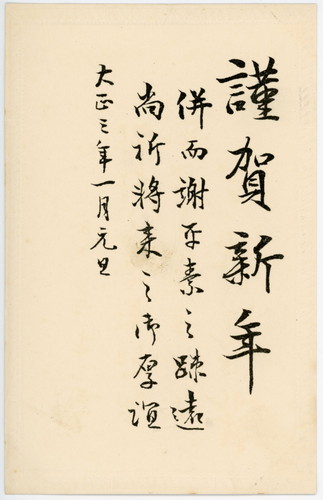 謹賀新年
併而謝平素之疎遠
尚祈將来之御厚誼
大正三年一月元旦